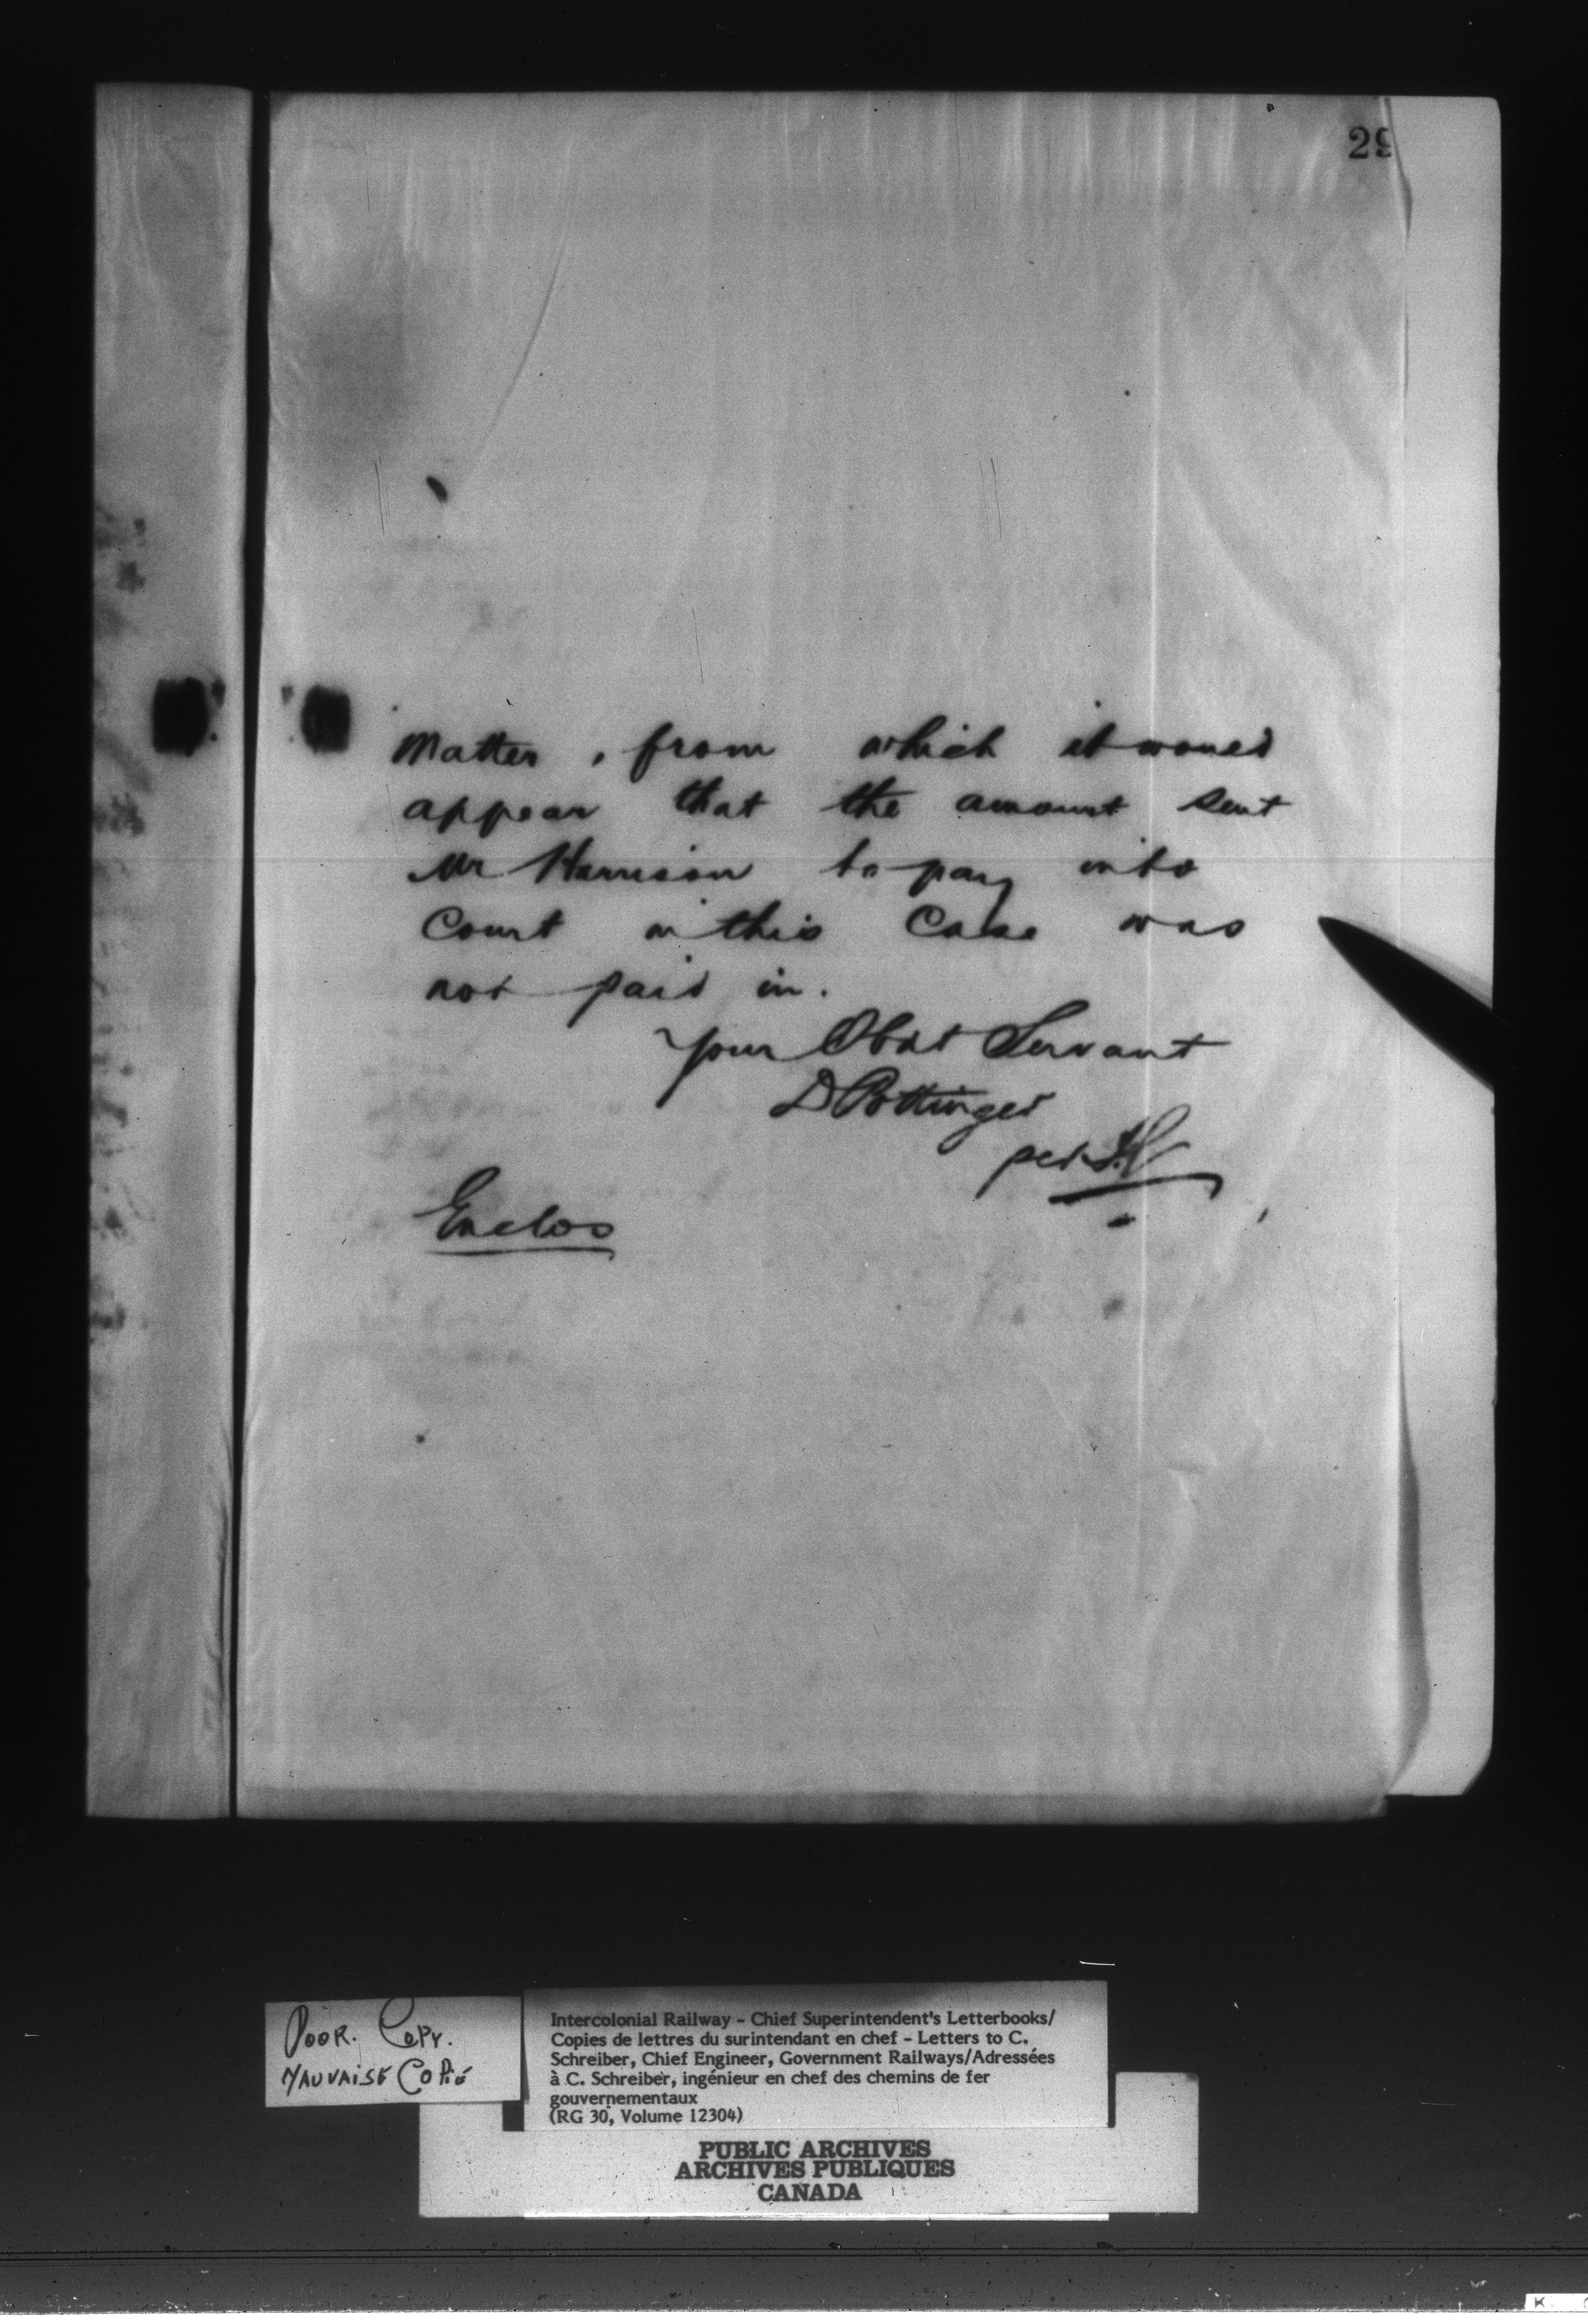 29
Matter, from which it would
appear that the amount sent
Mr Harrison to pay into
Court in this Case was
not paid in.
Your Obdt Servant
D Pottinger
per
Enclos
Poor. Copy.
Mauvaise Copie
Intercolonial Railway - Chief Superintendent's Letterbooks/
Copies de lettres du surintendant en chef - Letters to C.
Schreiber, Chief Engineer, Government Railways/Adressées
à C. Schreiber, ingénieur en chef des chemins de fer
gouvernementaux
(RG 30, Volume 12304)
PUBLIC ARCHIVES
ARCHIVES PUBLIQUES
CANADA